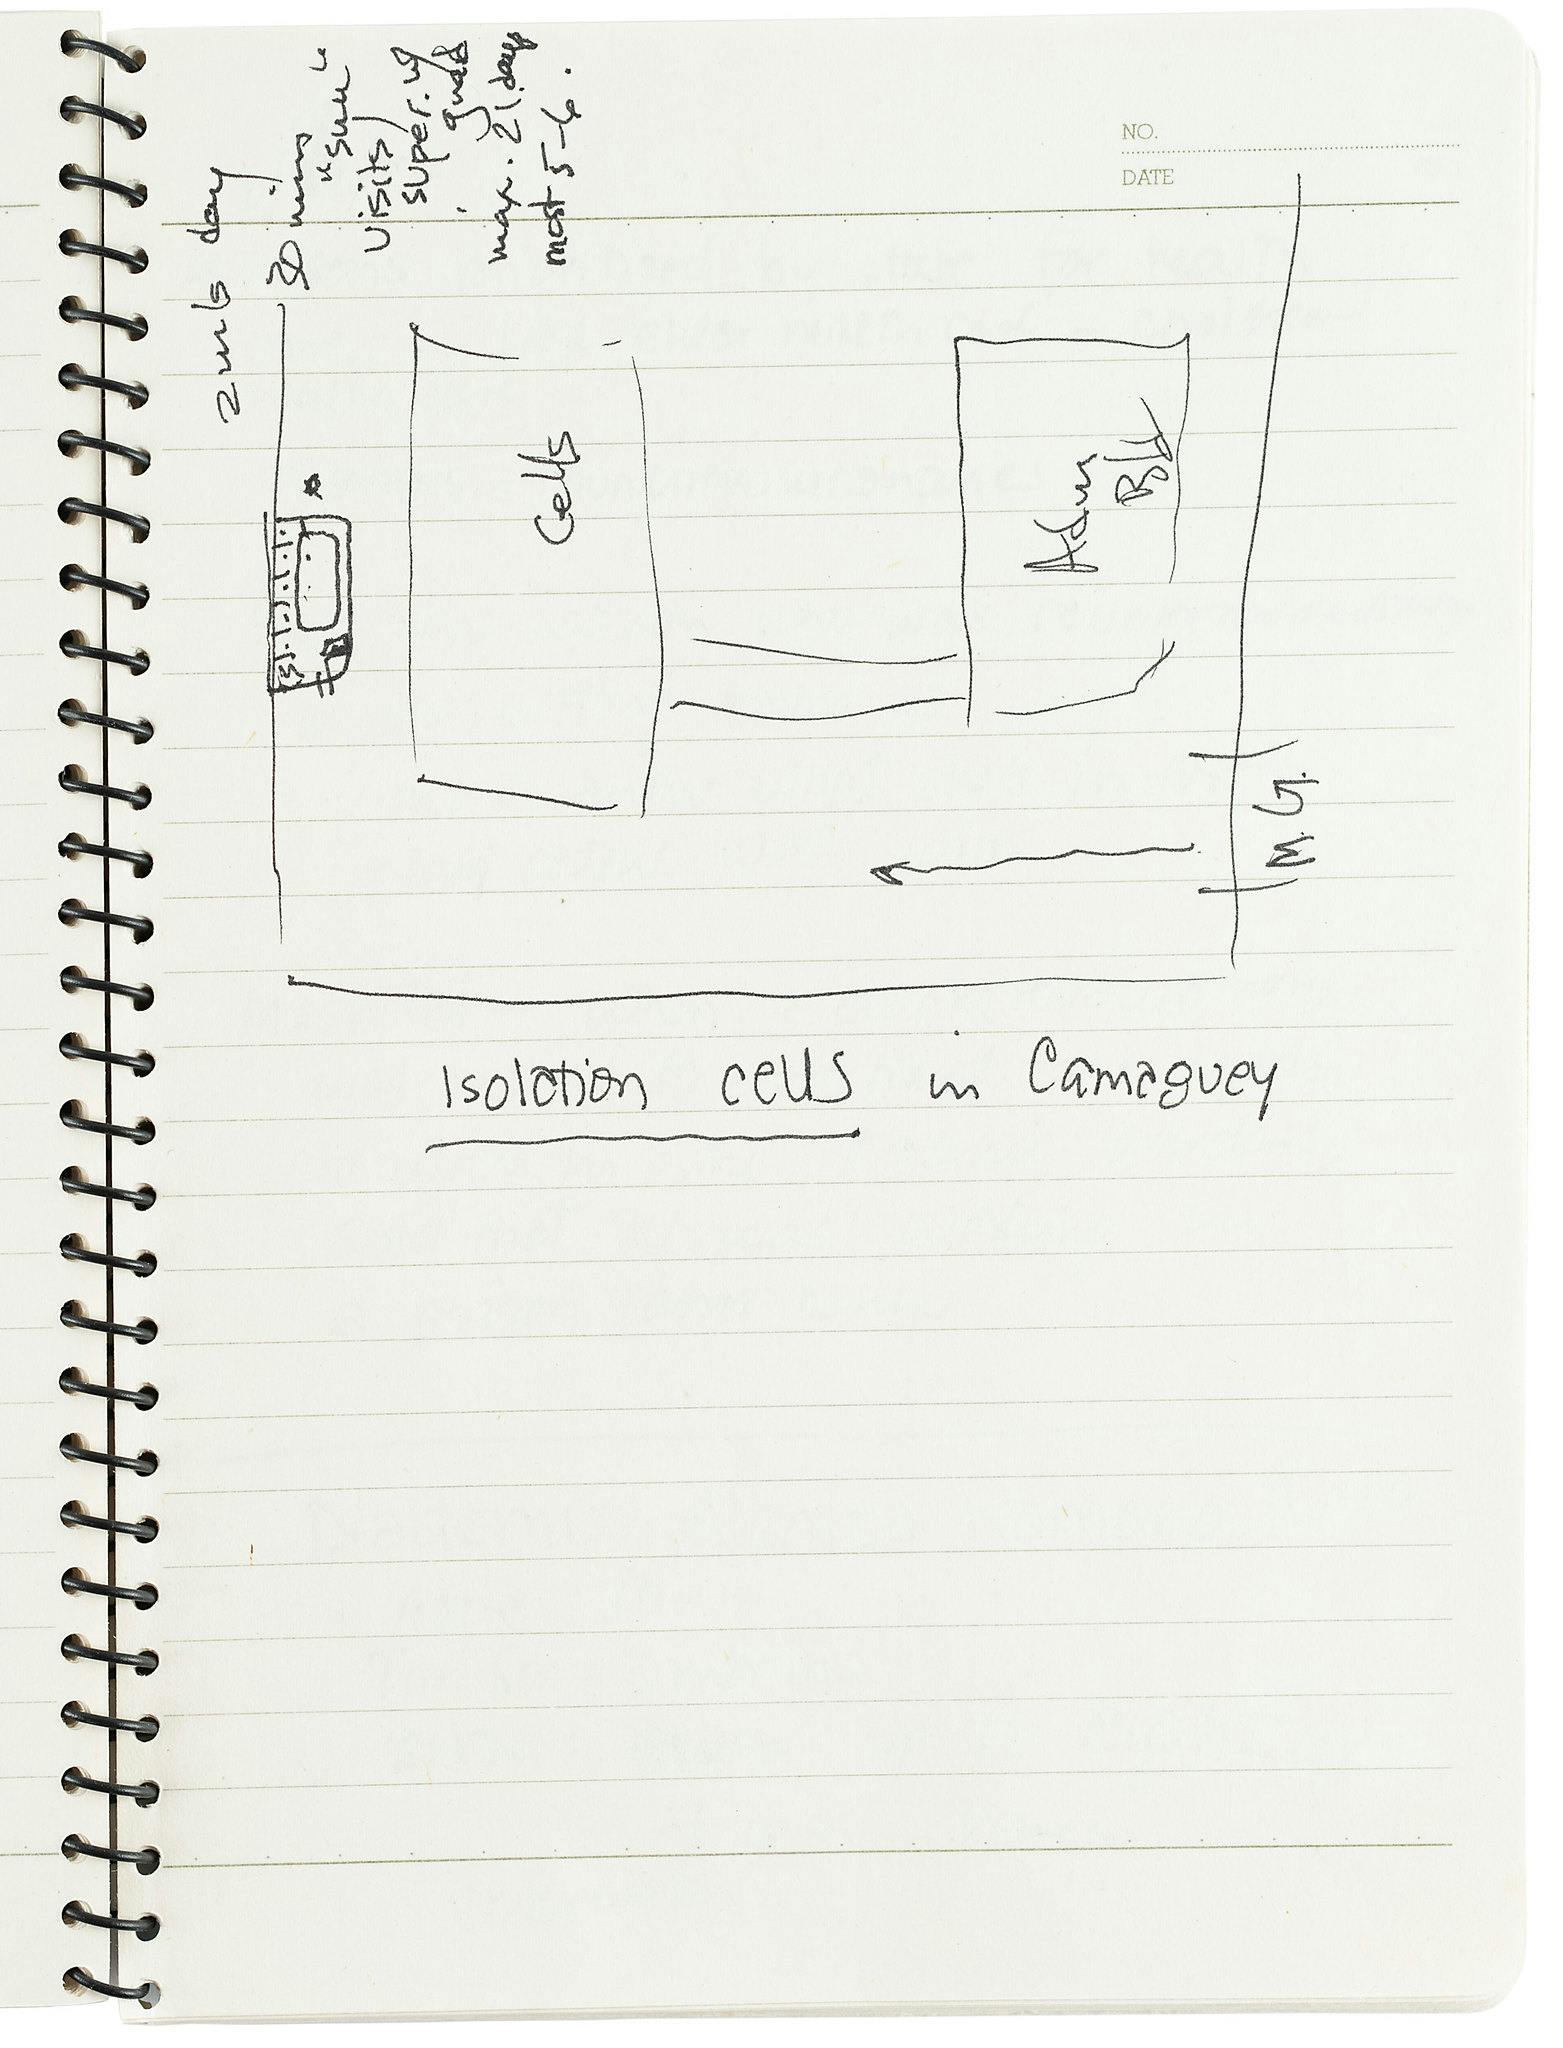 NO.
DATE
day
30 mins
"sun"
visits/
super. w/
guards
max. 21. days
most 5-6.
Cells
Adm
Bld
M. G.
Isolation cells in Camaguey